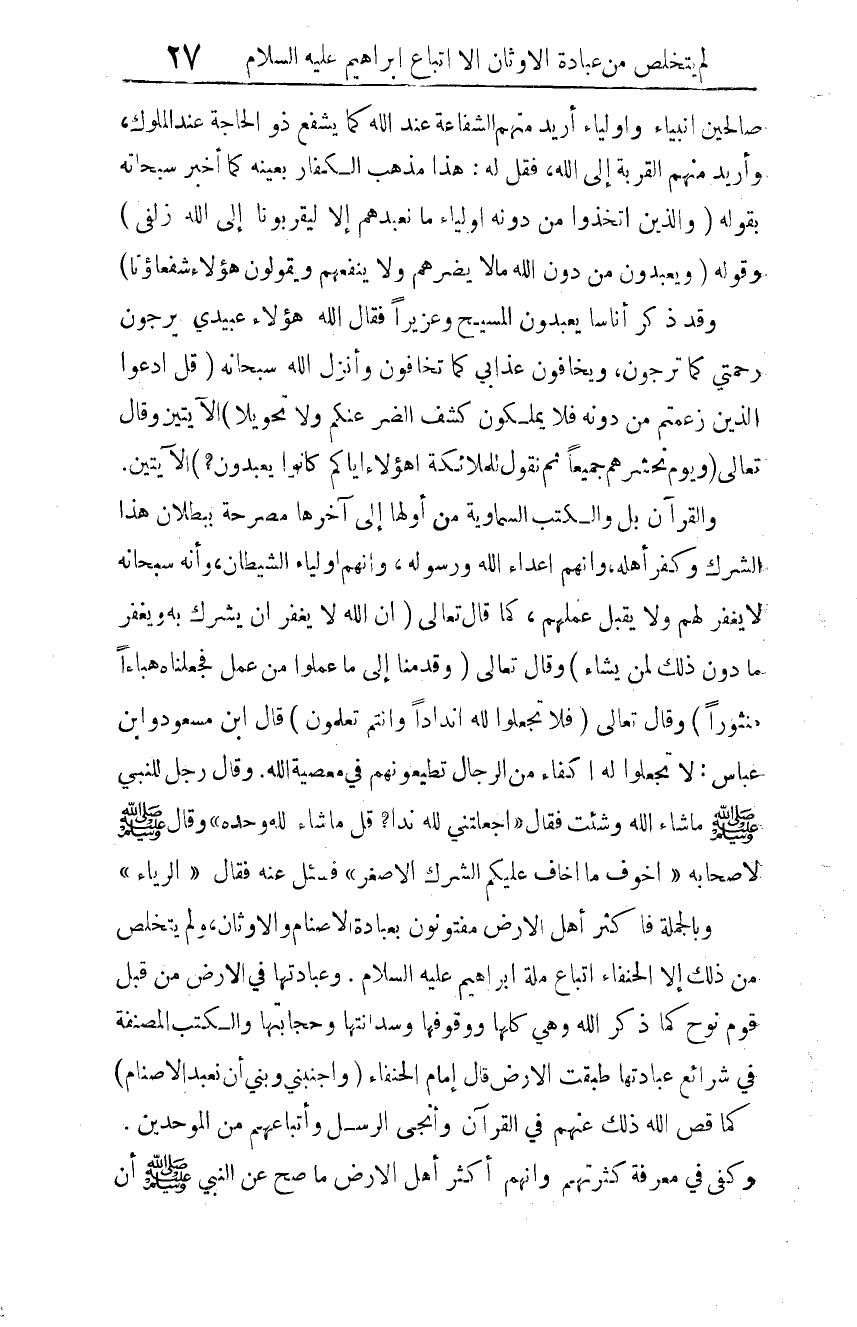 لم يتخلص من عبادة الاوثان الا اتباع ابراهيم عليه السلام ٢٧
صالحين انبياء واولياء أريد منهم الشفاعة عند الله كما يشفع ذو الحاجة عند الملوك،
وأريد منهم القربة إلى الله، فقل له : هذا مذهب الكفار بعينه كما أخبر سبحانه
بقوله ( والذين اتخذوا من دونه اولياء ما نعبدهم إلا ليقربونا إلى الله زلفى )
وقوله ( ويعبدون من دون الله مالا يضرهم ولا ينفعهم ويقولون هؤلاء شفعاؤنا)
وقد ذكر أناسا يعبدون المسيح وعزيراً فقال الله هؤلاء عبيدي يرجون
رحمتي كما ترجون، ويخافون عذابي كما تخافون وأنزل الله سبحانه ( قل ادعوا
الذين زعمتم من دونه فلا يملكون كشف الضر عنكم ولا تحويلا ) الآيتين وقال
تعالى (ويوم نحشرهم جميعاً ثم نقول للملائكة اهؤلاء اياكم كانوا يعبدون؟) الآيتين.
والقرآن بل والكتب السماوية من أولها إلى آخرها مصرحة ببطلان هذا
الشرك وكفر أهله، وانهم اعداء الله ورسوله ، وانهم اولياء الشيطان، وأنه سبحانه
لا يغفر لهم ولا يقبل عملهم ، كما قال تعالى ( ان الله لا يغفر ان يشرك به ويغفر
ما دون ذلك لمن يشاء ) وقال تعالى ( وقدمنا إلى ما عملوا من عمل فجعلناه هباءاً
منثوراً ) وقال تعالى ( فلا تجعلوا لله انداداً وانتم تعلمون ) قال ابن مسعود وابن
عباس : لا تجعلوا له اكفاء من الرجال تطيعونهم في معصية الله. وقال رجل للنبي
ﷺ ماشاء الله وشئت فقال «اجعلتني لله ندا؟ قل ماشاء لله وحده» وقال ﷺ
لاصحابه « اخوف ما اخاف عليكم الشرك الاصغر» فسئل عنه فقال « الرياء »
وبالجملة فاكثر أهل الارض مفتونون بعبادة الاصنام والاوثان، ولم يتخلص
من ذلك إلا الحنفاء اتباع ملة ابراهيم عليه السلام . وعبادتها في الارض من قبل
قوم نوح كما ذكر الله وهي كلها ووقوفها وسدانتها وحجابتها والكتب المصنفة
في شرائع عبادتها طبقت الارض قال إمام الحنفاء ( واجنبني وبني أن نعبد الاصنام)
كما قص الله ذلك عنهم في القرآن وأنجى الرسل وأتباعهم من الموحدين .
وكفى في معرفة كثرتهم وانهم أكثر أهل الارض ما صح عن النبي ﷺ أن